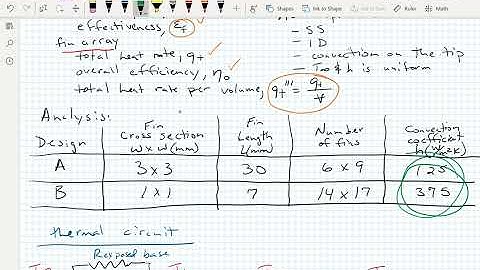 Shapes Ink to Shape Ink to
effectiveness, εf
fin array
total heat rate, qt
overall efficiency, ηo
total heat rate per volume, qt''' = qt/V
– SS
– 1D
– convection on the tip
– T∞ & h is uniform
Analysis:
Design | Fin Cross section w x w (mm) | Fin Length L (mm) | Number of fins | Convection coefficient h (W/m²K)
A | 3 x 3 | 30 | 6 x 9 | 125
B | 1 x 1 | 7 | 14 x 17 | 375
thermal circuit
base